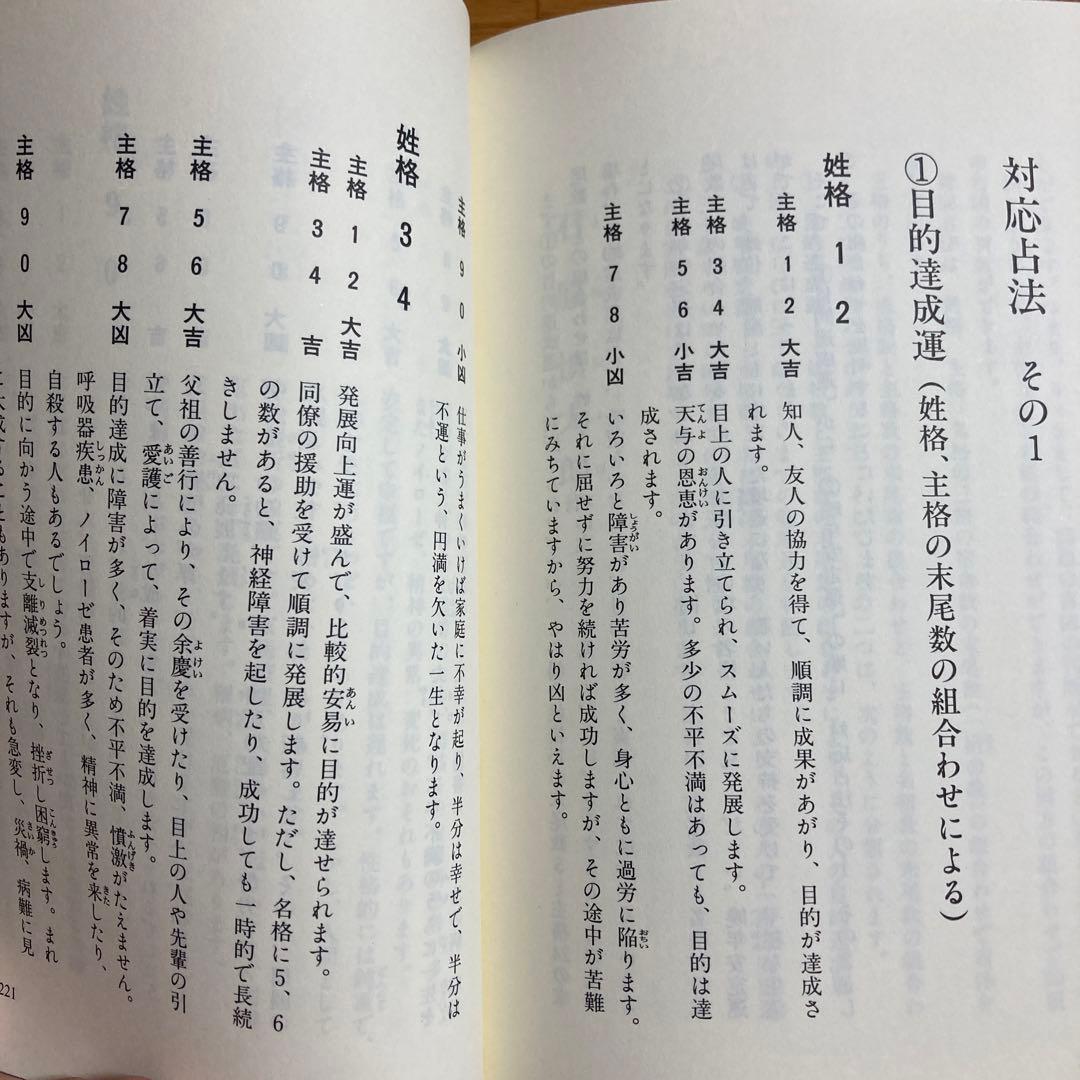 対応占法 その1
①目的達成運(姓格、主格の末尾数の組合わせによる)
姓格 1 2
主格 1 2 大吉 知人、友人の協力を得て、順調に成果があがり、目的が達成さ
れます。
主格 3 4 大吉 目上の人に引き立てられ、スムーズに発展します。
主格 5 6 小吉 天与の恩恵があります。多少の不平不満はあっても、目的は達
成されます。
主格 7 8 小凶 いろいろと障害があり苦労が多く、身心ともに過労に陥ります。
それに屈せずに努力を続ければ成功しますが、その途中が苦難
にみちていますから、やはり凶といえます。
主格 9 0 小凶 仕事がうまくいけば家庭に不幸が起り、半分は幸せで、半分は
不運という、円満を欠いた一生となります。
姓格 3 4
主格 1 2 大吉 発展向上運が盛んで、比較的安易に目的が達せられます。
主格 3 4 吉 同僚の援助を受けて順調に発展します。ただし、名格に5、6
の数があると、神経障害を起したり、成功しても一時的で長続
きしません。
主格 5 6 大吉 父祖の善行により、その余慶を受けたり、目上の人や先輩の引
立て、愛護によって、着実に目的を達成します。
主格 7 8 大凶 目的達成に障害が多く、そのため不平不満、憤激がたえません。
呼吸器疾患、ノイローゼ患者が多く、精神に異常を来したり、
自殺する人もあるでしょう。
主格 9 0 大凶 目的に向かう途中で支離滅裂となり、挫折し困窮します。まれ
に大成することもありますが、それも急変し、災禍、病難に見
221